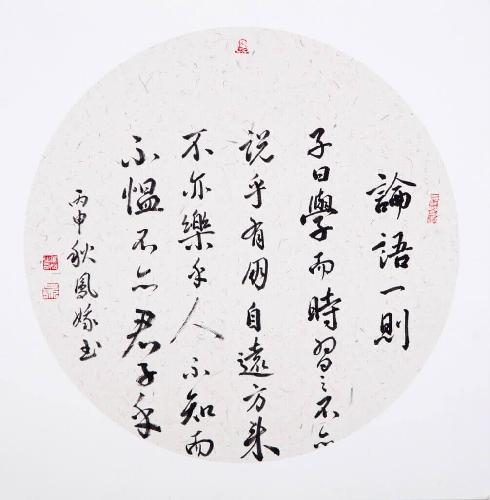 論語一則
子曰學而時習之不亦
說乎有朋自遠方來
不亦樂乎人不知而
不愠不亦君子乎
丙申秋鳳娥書